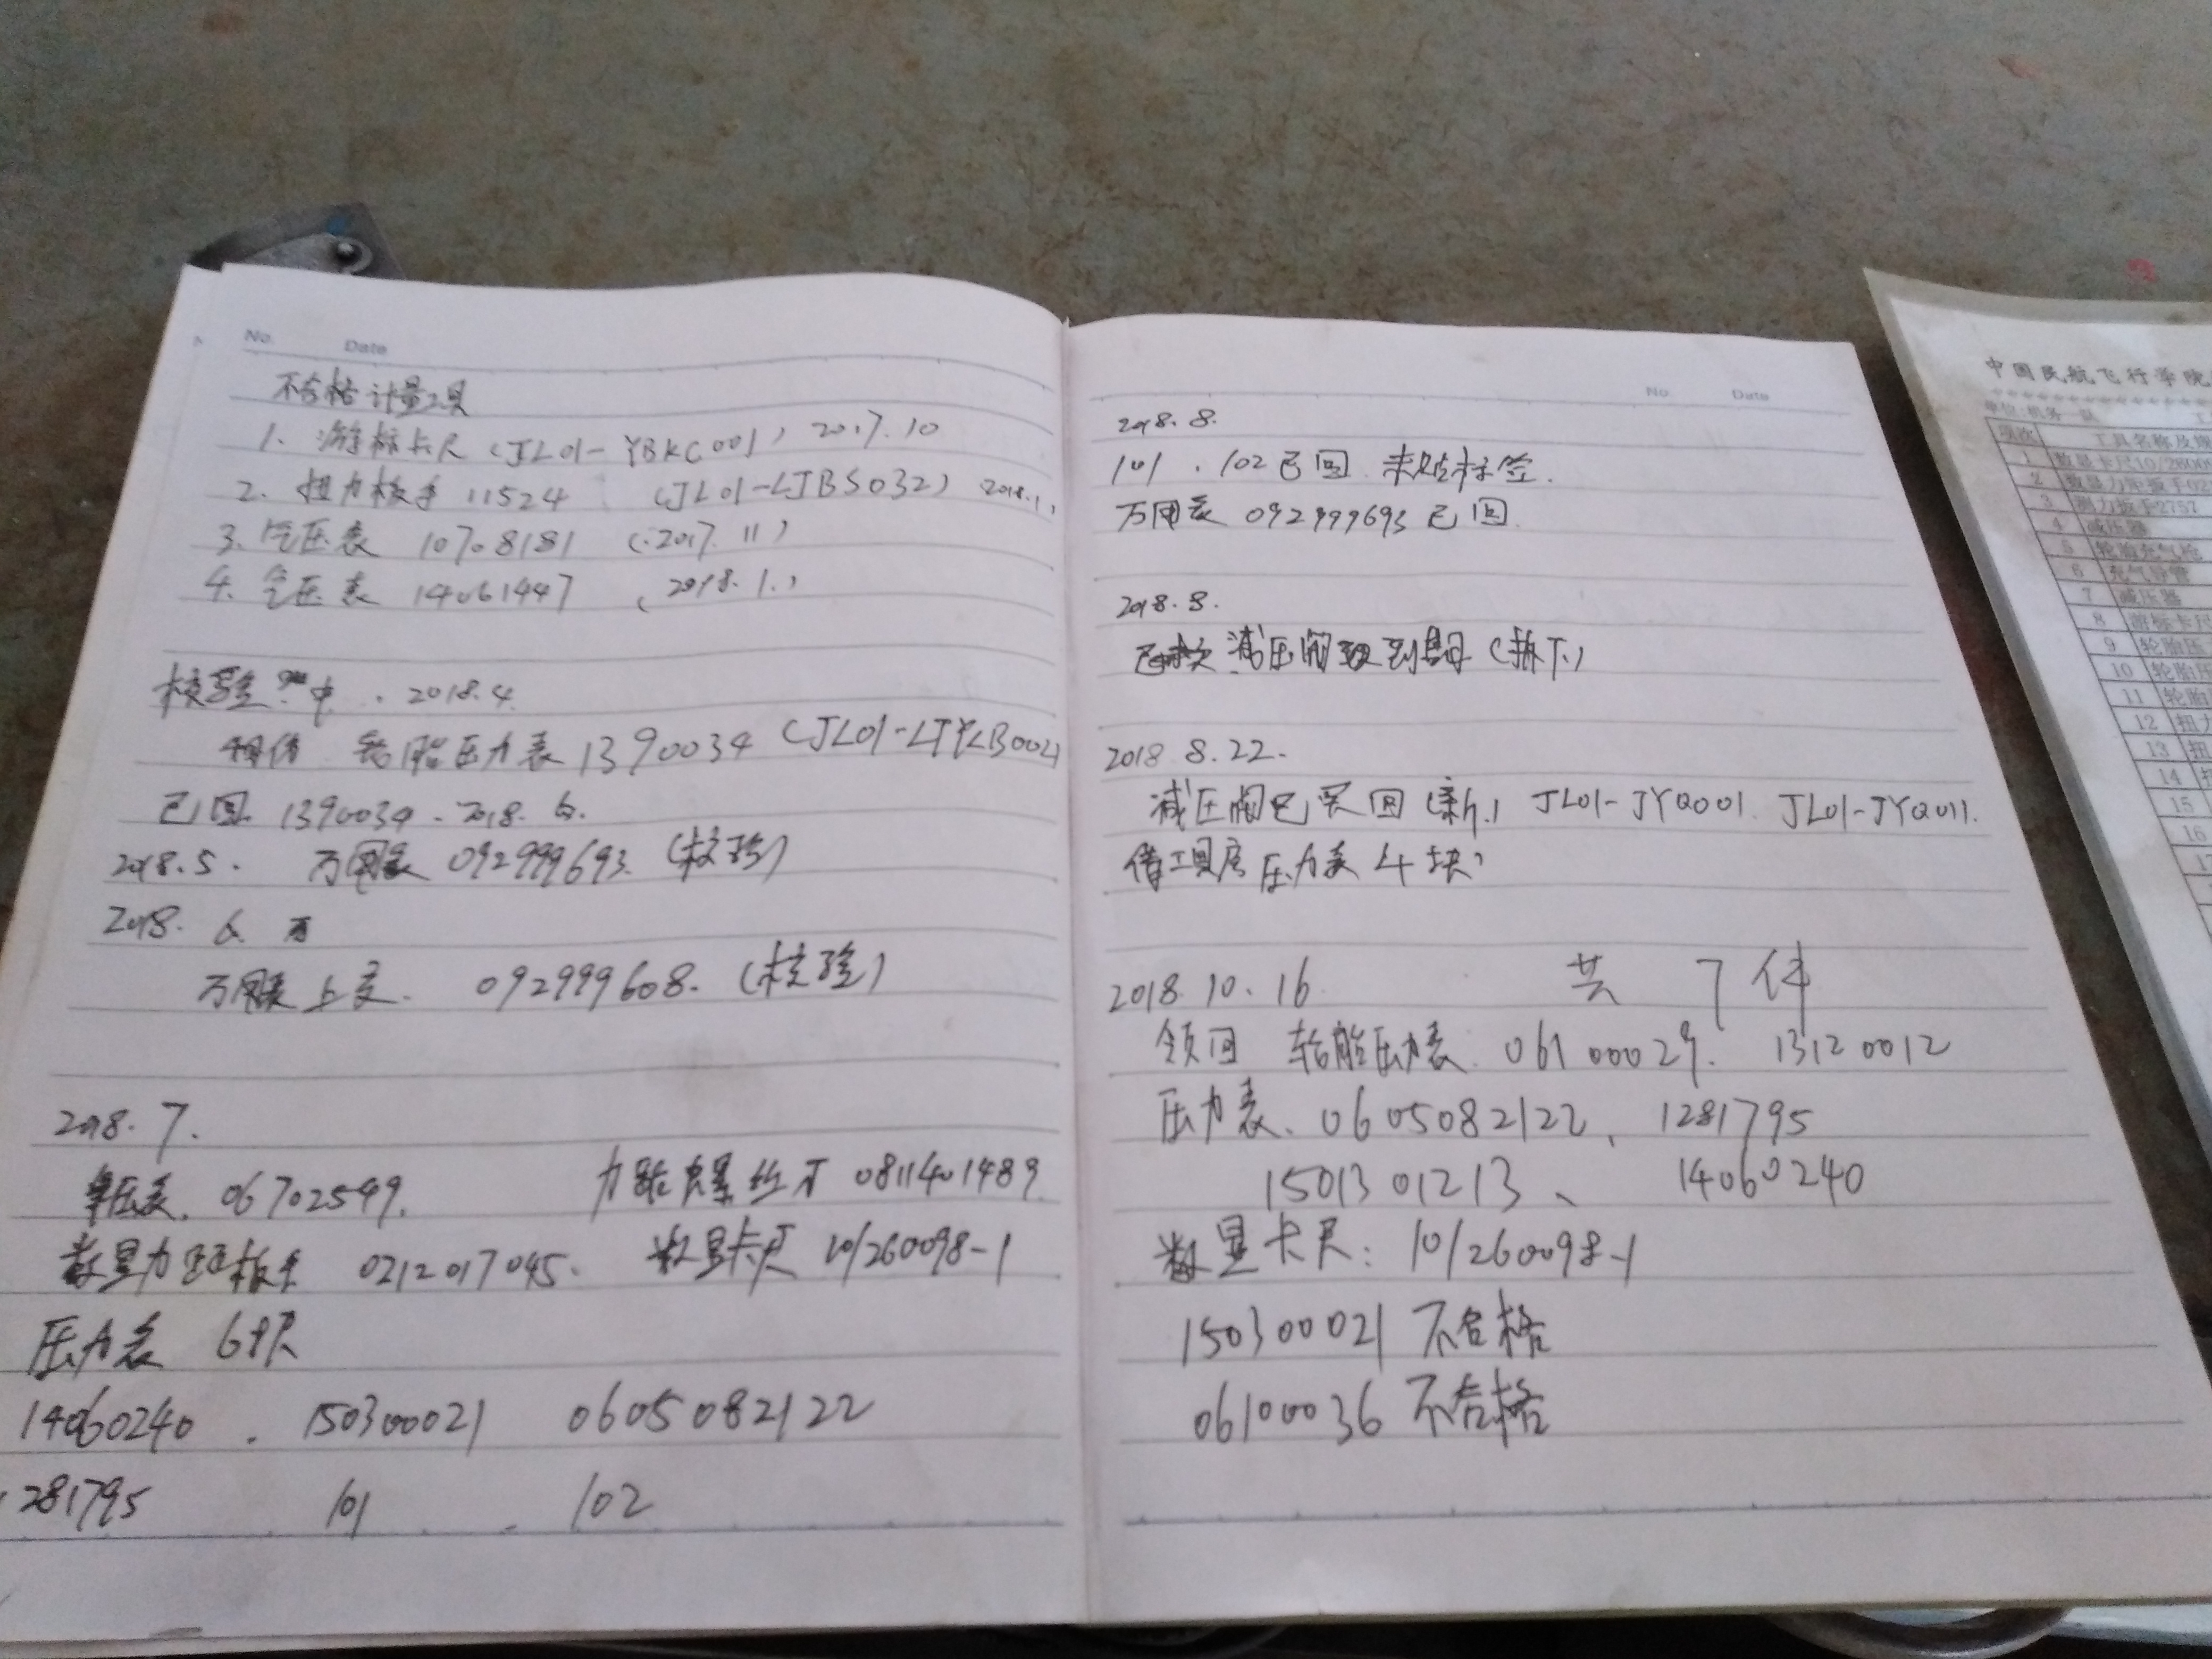 No. Date
不合格计量工具
1. 游标卡尺 (JL01-YBKC001) 2017.10
2. 扭力板手 11524 (JL01-LJBS032) 2018.1
3. 气压表 10708181 (2017.11)
4. 气压表 14061447 (2018.1.)
校验中. 2018.4
轮胎压力表 1390034 (JL01-LTYLB002
已回 1390034. 2018.6.
2018.5. 万用表 092999693. (校验)
2018. 6.
万用表上交. 092999608. (校验)
2018.7.
压表. 06702549. 力距螺丝刀 0811401489
数显力矩板手 0212017045. 数显卡尺 10/260098-1
压力表 6块
14060240 . 150300021 0605082122
1281795 101 . 102
No. Date
2018.8.
101 . 102已回 未贴标签.
万用表 092999693 已回.
2018.8.
减压阀 到期 (拆下)
2018 8.22.
减压阀已买回(新) JL01-JYQ001. JL01-JYQ011.
借工具房 压力表 4块
2018.10.16 共 7件
领回 轮胎压力表. 06100029. 13120012
压力表、0605082122、 1281795
1501301213、 14060240
数显卡尺: 10/260098-1
150300021 不合格
06100036 不合格
中国民航飞行学院
单位:机务一队
项次 工具名称及规
1 数显卡尺10/26009
2 数显力矩扳手02
3 测力扳手2757
4 减压器
5 轮胎充气枪
6 充气导管
7 减压器
8 游标卡尺
9 轮胎压
10 轮胎压
11 轮胎
12 扭力
13 扭
14
15
16